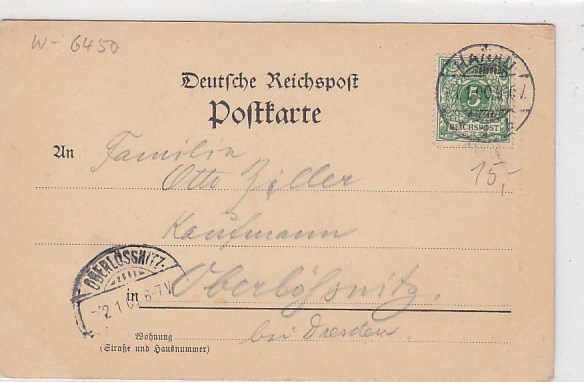 W- 6450
Deutsche Reichspost
Postkarte
HANAU
5
REICHSPOST
15,-
An Familie
Otto Ziller
Kaufmann
OBERLÖSSNITZ.
in Oberlößnitz
bei Dresden.
Wohnung
(Straße und Hausnummer)